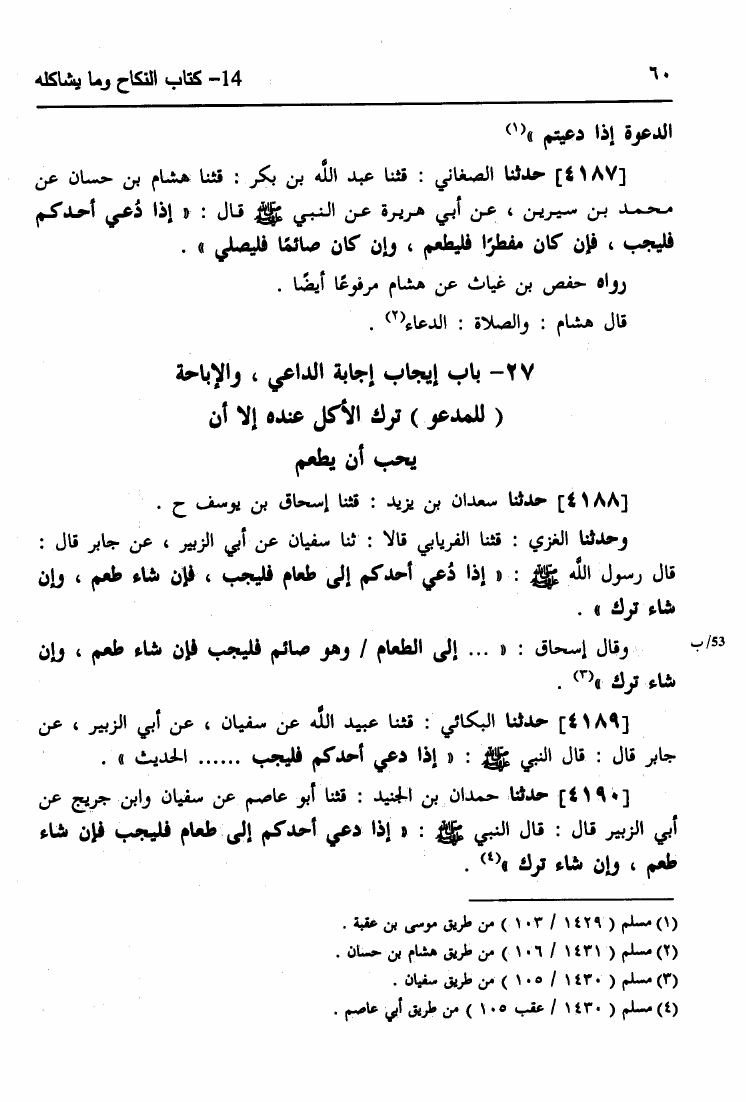 ٦٠ 14- كتاب النكاح وما يشاكله
الدعوة إذا دعيتم »(١)
[٤١٨٧] حدثنا الصغاني : قثنا عبد اللَّه بن بكر : قثنا هشام بن حسان عن
محمد بن سيرين ، عن أبي هريرة عن النبي ﷺ قال : « إذا دُعي أحدكم
فليجب ، فإن كان مفطرًا فليطعم ، وإن كان صائمًا فليصلي » .
رواه حفص بن غياث عن هشام مرفوعًا أيضًا .
قال هشام : والصلاة : الدعاء(٢) .
٢٧- باب إيجاب إجابة الداعي ، والإباحة
( للمدعو ) ترك الأكل عنده إلا أن
يحب أن يطعم
[٤١٨٨] حدثنا سعدان بن يزيد : قثنا إسحاق بن يوسف ح .
وحدثنا الغزي : قثنا الفريابي قالا : ثنا سفيان عن أبي الزبير ، عن جابر قال :
قال رسول اللَّه ﷺ : « إذا دُعي أحدكم إلى طعام فليجب ، فإن شاء طعم ، وإن
شاء ترك » .
وقال إسحاق : « ... إلى الطعام / وهو صائم فليجب فإن شاء طعم ، وإن
53/ب
شاء ترك »(٣) .
[٤١٨٩] حدثنا البكائي : قثنا عبيد اللَّه عن سفيان ، عن أبي الزبير ، عن
جابر قال : قال النبي ﷺ : « إذا دعي أحدكم فليجب ...... الحديث » .
[٤١٩٠] حدثنا حمدان بن الجنيد : قثنا أبو عاصم عن سفيان وابن جريج عن
أبي الزبير قال : قال النبي ﷺ : « إذا دعي أحدكم إلى طعام فليجب فإن شاء
طعم ، وإن شاء ترك »(٤) .
(١) مسلم ( ١٤٢٩ / ١٠٣ ) من طريق موسى بن عقبة .
(٢) مسلم ( ١٤٣١ / ١٠٦ ) من طريق هشام بن حسان .
(٣) مسلم ( ١٤٣٠ / ١٠٥ ) من طريق سفيان .
(٤) مسلم ( ١٤٣٠ / عقب ١٠٥ ) من طريق أبي عاصم .